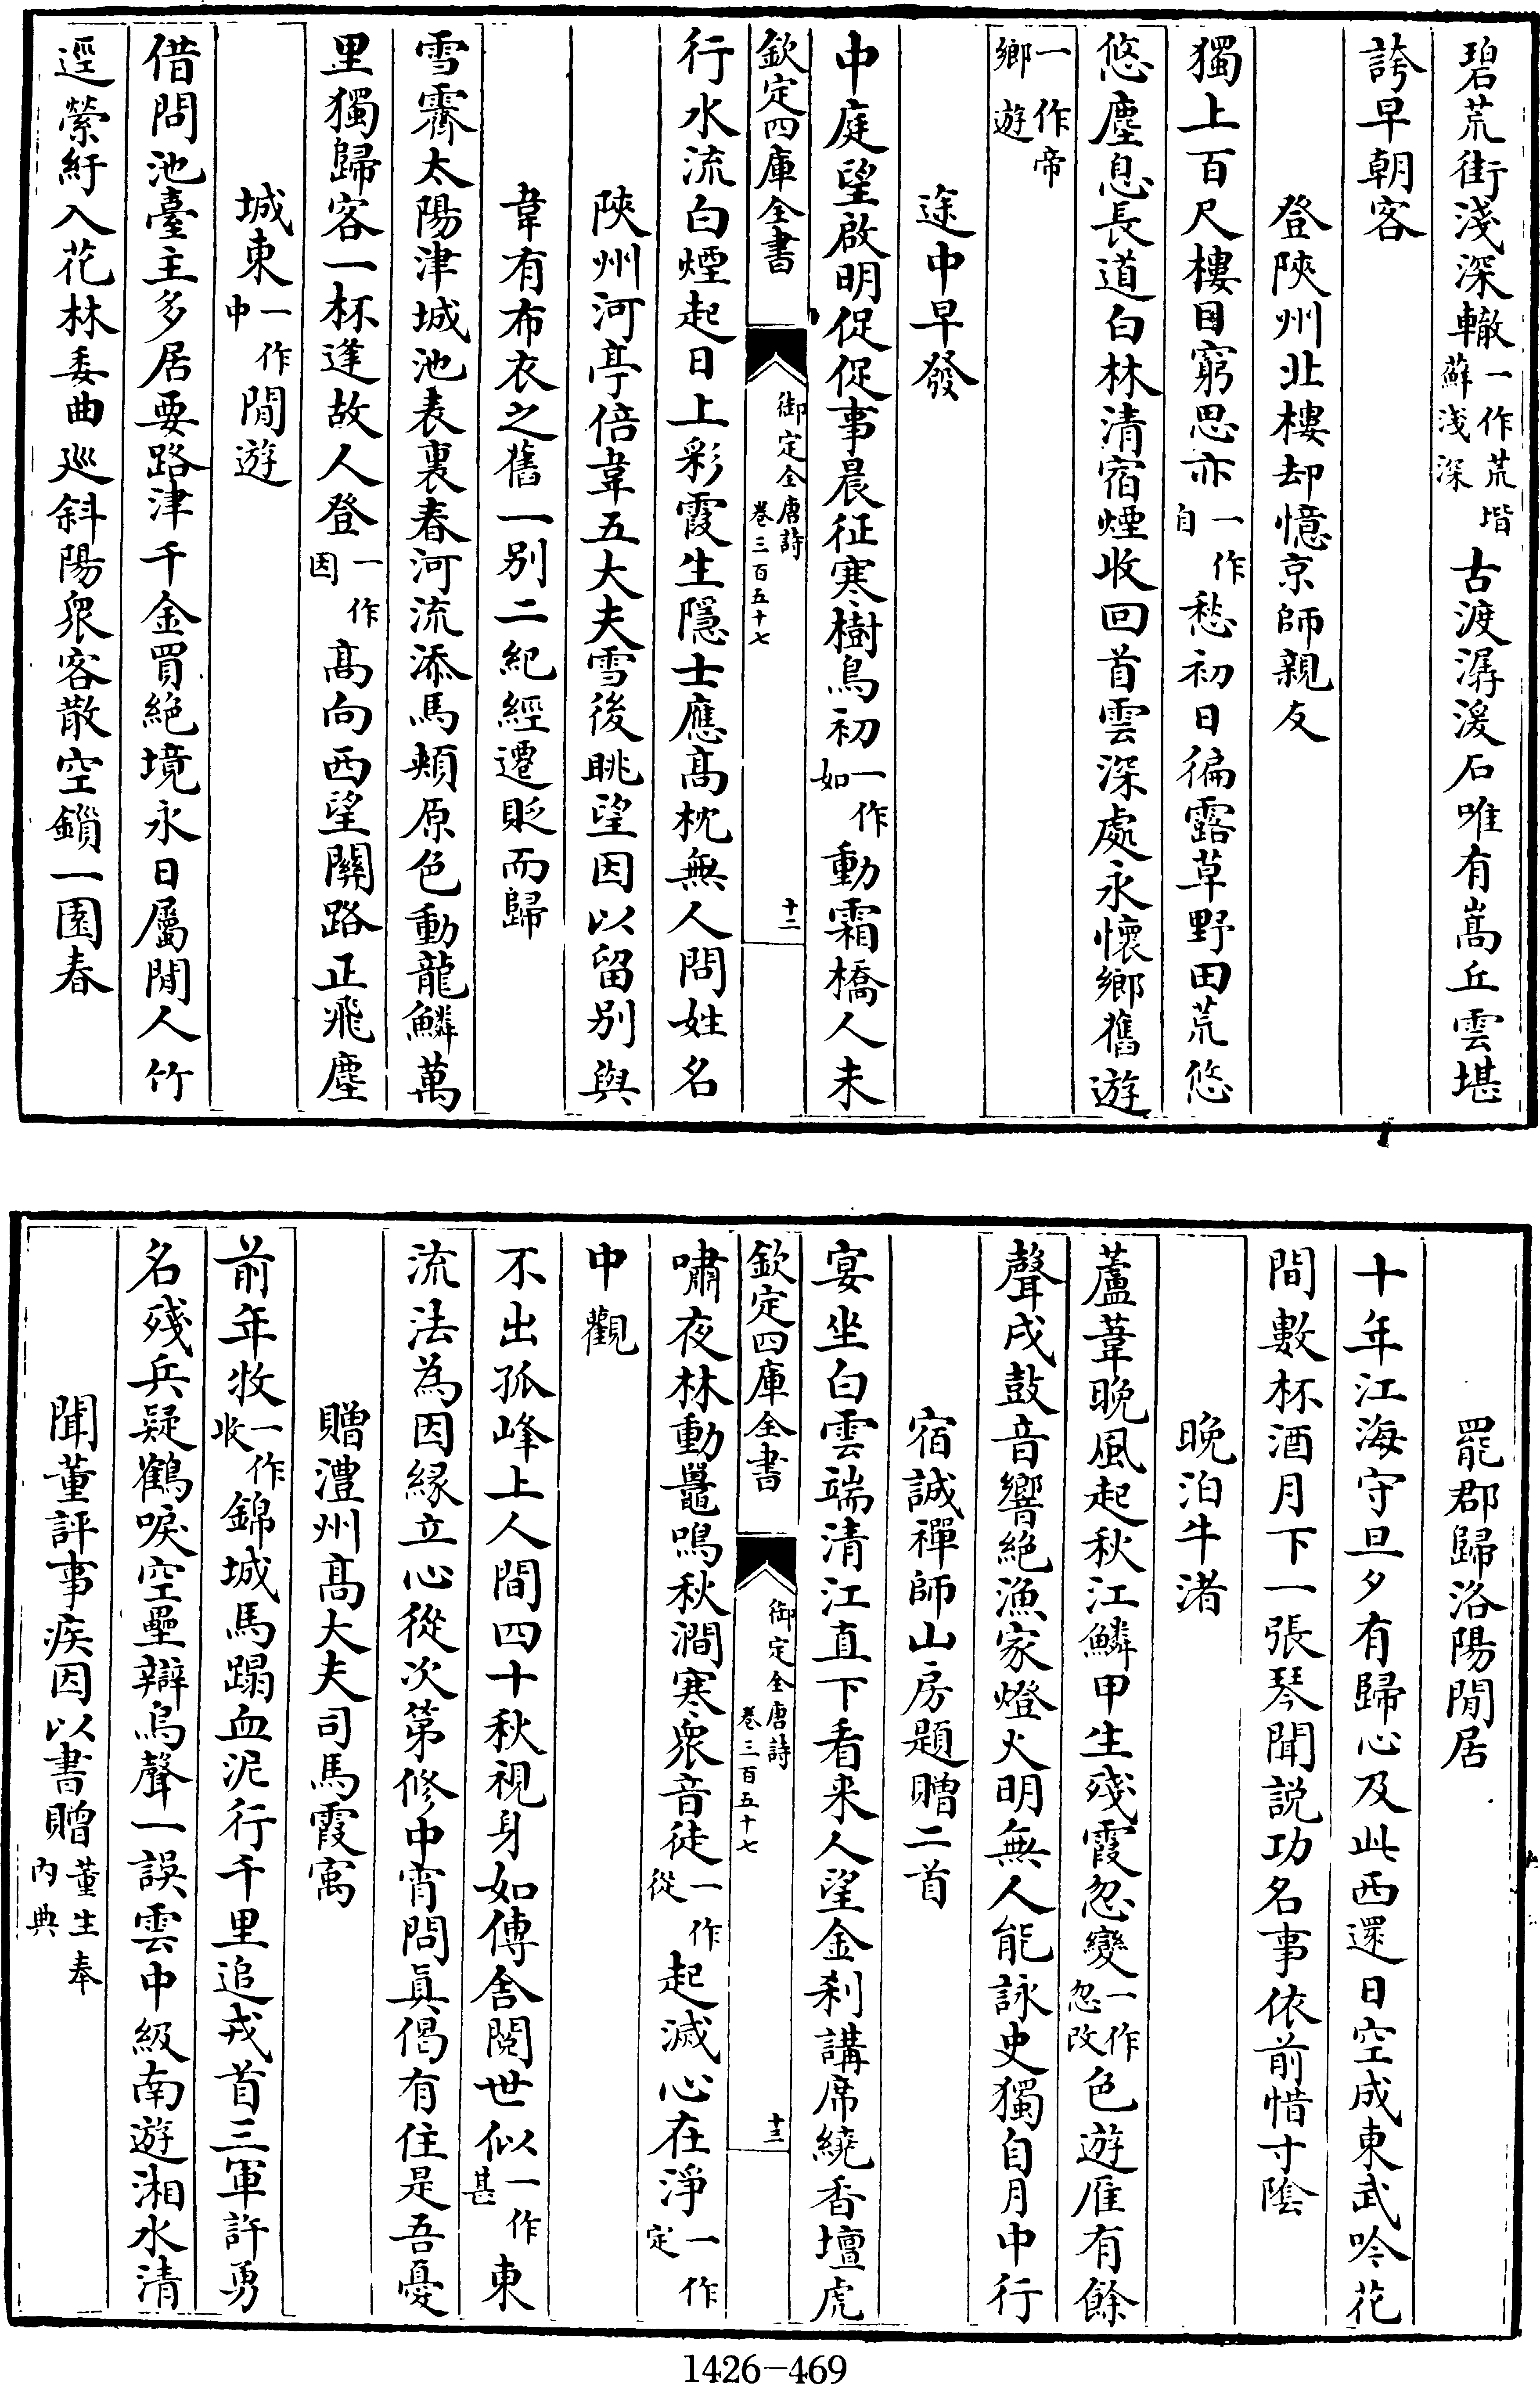 碧荒街淺深轍一作荒堦蘚淺深古渡潺湲石唯有嵩丘雲堪
誇早朝客
登陝州北樓却憶京師親友
獨上百尺樓目窮思亦一作自愁初日徧露草野田荒悠
悠塵息長道白林清宿煙收回首雲深處永懷鄉舊遊
一作帝鄉遊
途中早發
中庭望啟明促促事晨征寒樹鳥初一作如動霜橋人未
欽定四庫全書
御定全唐詩
卷三百五十七
十二
行水流白煙起日上彩霞生隱士應高枕無人問姓名
陝州河亭倍韋五大夫雪後眺望因以留别與
韋有布衣之舊一别二紀經遷貶而歸
雪霽太陽津城池表裏春河流添馬頰原色動龍鱗萬
里獨歸客一杯逢故人登一作因高向西望關路正飛塵
城東一作中閒遊
借問池臺主多居要路津千金買絶境永日屬閒人竹
逕縈紆入花林委曲巡斜陽衆客散空鎻一園春
罷郡歸洛陽閒居
十年江海守旦夕有歸心及此西還日空成東武吟花
間數杯酒月下一張琴聞説功名事依前惜寸陰
晚泊牛渚
蘆葦晚風起秋江鱗甲生殘霞忽變一作忽改色遊雁有餘
聲戍鼓音響絶漁家燈火明無人能詠史獨自月中行
宿誠禪師山房題贈二首
宴坐白雲端清江直下看来人望金刹講席繞香壇虎
欽定四庫全書
御定全唐詩
卷三百五十七
十三
嘯夜林動鼉鳴秋澗寒衆音徒一作從起滅心在淨一作定
中觀
不出孤峰上人間四十秋視身如傳舍閱世似一作甚東
流法為因縁立心從次第修中宵問真偈有住是吾憂
贈澧州高大夫司馬霞寓
前年牧一作收錦城馬蹋血泥行千里追戎首三軍許勇
名殘兵疑鶴唳空壘辯烏聲一誤雲中級南遊湘水清
聞董評事疾因以書贈董生奉内典
1426-469